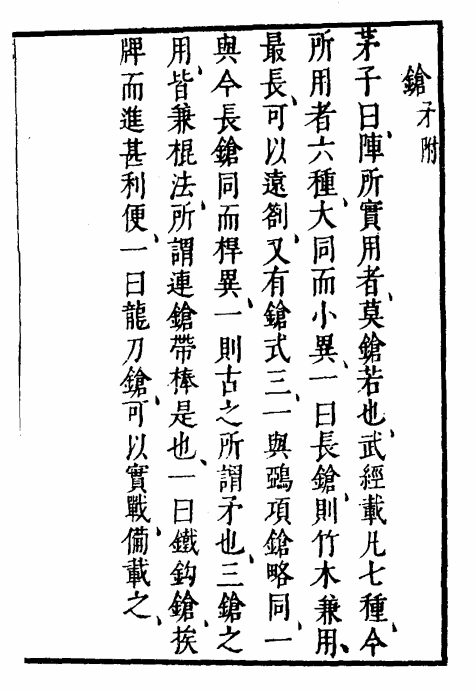 鎗 矛附
茅子曰、陣所實用者、莫鎗若也、武經載凡七種、今
所用者六種、大同而小異、一曰長鎗、則竹木兼用、
最長、可以遠劄、又有鎗式三、一與鵶項鎗略同、一
與今長鎗同而桿異、一則古之所謂矛也、三鎗之
用、皆兼棍法、所謂連鎗帶棒是也、一曰鐵鈎鎗、挨
牌而進甚利便、一曰龍刀鎗、可以實戰、備載之、